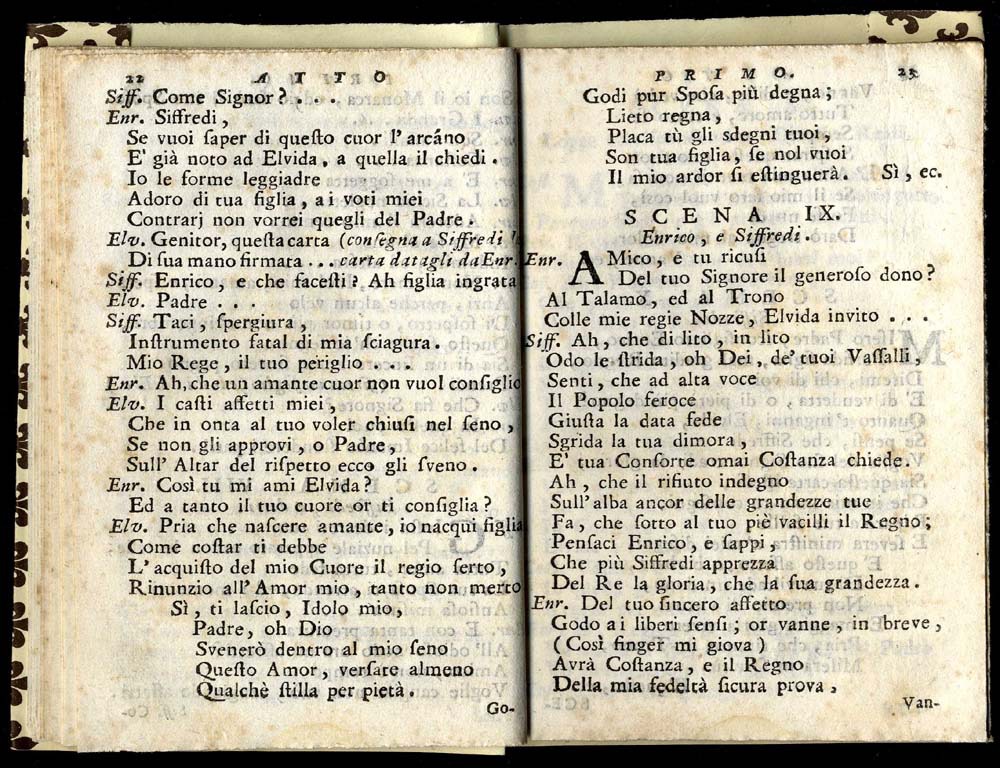 22 ATTO
Siff. Come Signor? . . .
Enr. Siffredi,
Se vuoi ſaper di queſto cuor l'arcáno
E' già noto ad Elvida, a quella il chiedi.
Io le forme leggiadre
Adoro di tua figlia, a i voti miei
Contrarj non vorrei quegli del Padre.
Elv. Genitor, queſta carta (conſegna a Siffredi la
Di sua mano firmata ... carta datagli da Enr.
Siff. Enrico, e che faceſti? Ah figlia ingrata
Elv. Padre . . .
Siff. Taci, ſpergiura,
Inſtrumento fatal di mia ſciagura.
Mio Rege, il tuo periglio . . .
Enr. Ah, che un amante cuor non vuol conſiglio
Elv. I caſti affetti miei,
Che in onta al tuo voler chiuſi nel ſeno,
Se non gli approvi, o Padre,
Sull' Altar del riſpetto ecco gli ſveno.
Enr. Così tu mi ami Elvida?
Ed a tanto il tuo cuore or ti conſiglia?
Elv. Pria che naſcere amante, io nacqui figlia
Come coſtar ti debbe
L'acquiſto del mio Cuore il regio ſerto,
Rinunzio all'Amor mio, tanto non merto
Sì, ti laſcio, Idolo mio,
Padre, oh Dio
Svenerò dentro al mio ſeno
Queſto Amor, verſate almeno
Qualchè ſtilla per pietà.
Go-
PRIMO. 23
Godi pur Spoſa più degna;
Lieto regna,
Placa tù gli sdegni tuoi,
Son tua figlia, ſe nol vuoi
Il mio ardor ſi eſtinguerà. Sì, ec.
SCENA IX.
Enrico, e Siffredi.
Enr. AMico, e tu ricuſi
Del tuo Signore il generoso dono?
Al Talamo, ed al Trono
Colle mie regie Nozze, Elvida invito . . .
Siff. Ah, che di lito, in lito
Odo le ſtrida, oh Dei, de' tuoi Vaſſalli,
Senti, che ad alta voce
Il Popolo feroce
Giuſta la data fede
Sgrida la tua dimora,
E' tua Conſorte omai Coſtanza chiede.
Ah, che il rifiuto indegno
Sull'alba ancor delle grandezze tue
Fa, che ſotto al tuo piè vacilli il Regno;
Penſaci Enrico, e ſappi,
Che più Siffredi apprezza
Del Re la gloria, che la ſua grandezza.
Enr. Del tuo ſincero affetto
Godo a i liberi ſenſi; or vanne, in breve,
(Così finger mi giova)
Avrà Coſtanza, e il Regno
Della mia fedeltà ſicura prova,
Van-